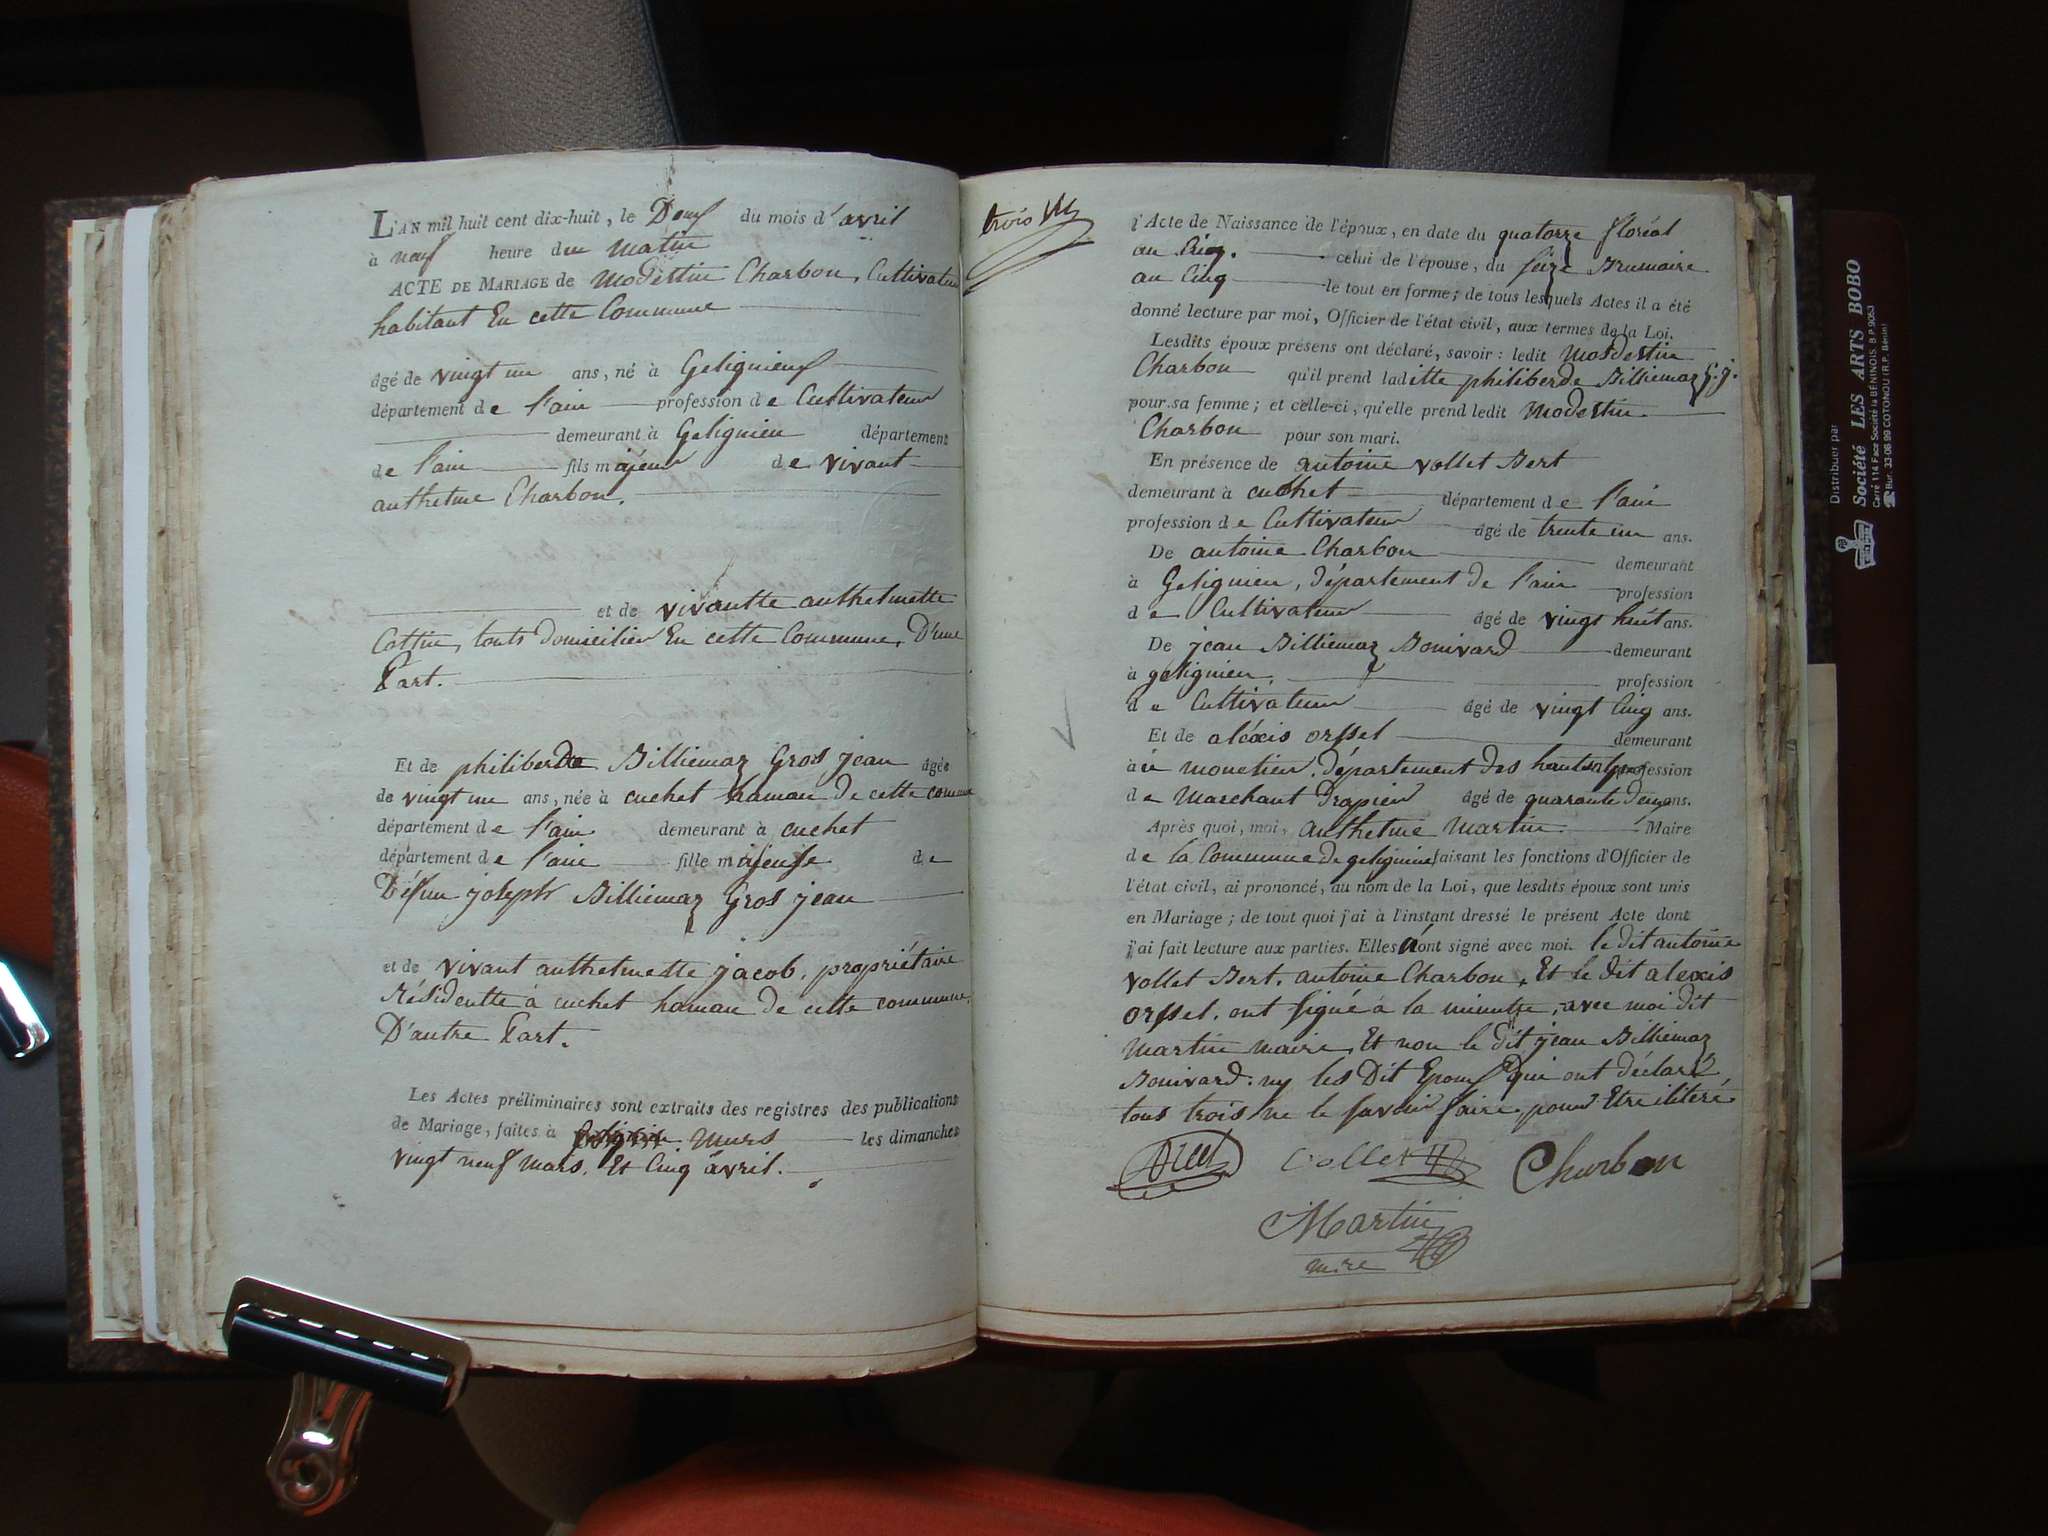 L'AN mil huit cent dix-huit, le Doux du mois d'avril
à neuf heure du matin
ACTE DE MARIAGE de modestin Charbon, Cultivateur
habitant En cette Commune
âgé de vingt un ans, né à Gelignieux
département de l'ain profession de Cultivateur
demeurant à Gelignieu département
de l'ain fils majeur de vivant
anthelme Charbon.
et de vivantte anthelmette
Cottin, touts domicilier En cette Commune, D'une
Part.
Et de philiberde Billiemaz Gros jean âgée
de vingt un ans, née à cuchet hamau de cette commune
département de l'ain demeurant à cuchet
département de l'ain fille majeure de
Défun joseph Billiemaz Gros jean
et de vivant anthelmette jacob, propriétaire
Résidentte à cuchet hamau de cette commune.
D'autre Part.
Les Actes préliminaires sont extraits des registres des publications
de Mariage, faites à murs les dimanches
vingt neuf mars, Et Cinq avril.
trois
l'Acte de Naissance de l'époux, en date du quatorze floréal
an Cinq. celui de l'épouse, du seize Brumaire
an Cinq le tout en forme; de tous lesquels Actes il a été
donné lecture par moi, Officier de l'état civil, aux termes de la Loi.
Lesdits époux présens ont déclaré, savoir: ledit Modestin
Charbon qu'il prend laditte philiberde Billiemaz G. j.
pour sa femme; et celle-ci, qu'elle prend ledit Modestin
Charbon pour son mari.
En présence de antoine vollet Bert
demeurant à cuchet département de l'ain
profession de Cultivateur âgé de trente un ans.
De antoine Charbon demeurant
à Gelignieu, département de l'ain profession
de Cultivateur âgé de vingt huit ans.
De jean Billiemaz Bonivard demeurant
à gelignieu. profession
de Cultivateur âgé de vingt Cinq ans.
Et de aléxis orssel demeurant
àu monetier, département des hautsalpes profession
de Marchant Drapier âgé de quarante deux ans.
Après quoi, moi, anthelme Martin Maire
de la Commune de gelignieu faisant les fonctions d'Officier de
l'état civil, ai prononcé, au nom de la Loi, que lesdits époux sont unis
en Mariage; de tout quoi j'ai à l'instant dressé le présent Acte dont
j'ai fait lecture aux parties. Elles n'ont signé avec moi. le dit antoine
vollet Bert, antoine Charbon, Et le dit alexis
orssel, ont signé à la minutte, avec moi dit
Martin maire, Et non le dit jean Billiemaz
Bonivard, ny les Dit Epoux Qui ont déclaré
tous trois ne le savoir faire pour Etre iliteré
Vollet Charbon
Martin
mire
Distribuer par
Société LES ARTS BOBO
Carré 114 Face Société la BÉNINOIS. B.P. 9053
☎ Bur. 33-06 99 COTONOU (R.P. Bénin)